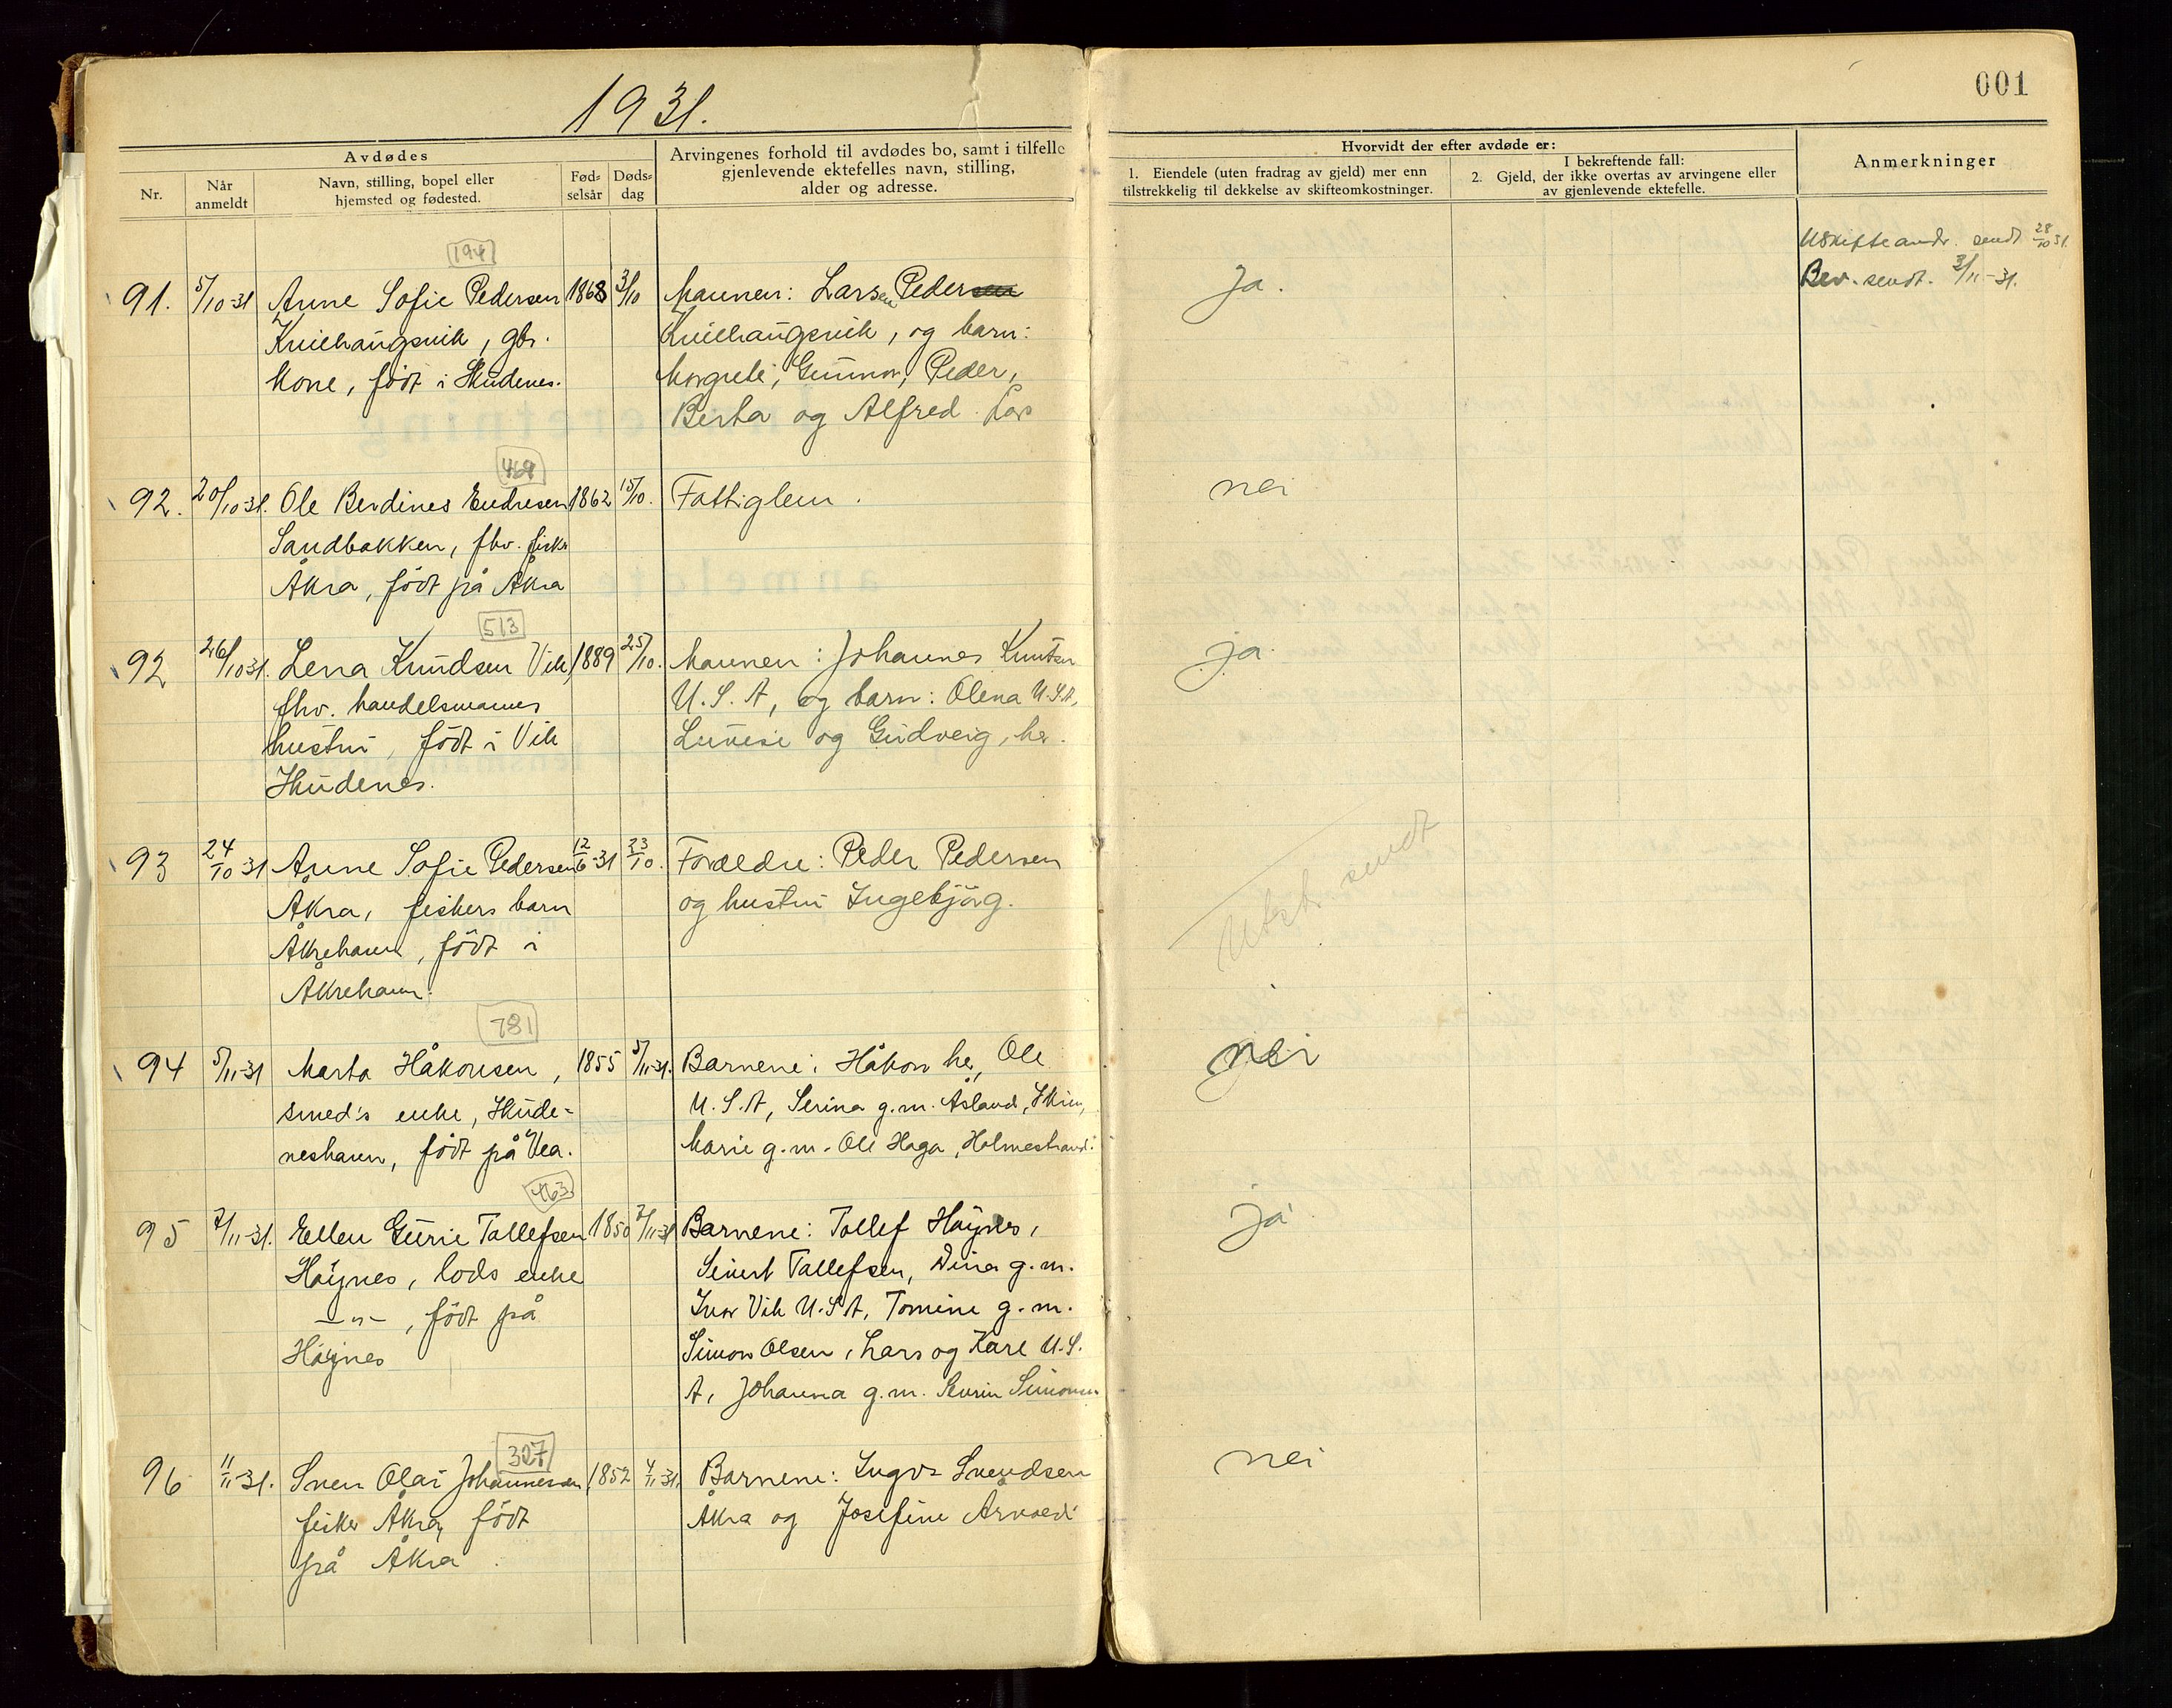 1931.
001
Avdødes
Arvingenes forhold til avdødes bo, samt i tilfelle
gjenlevende ektefelles navn, stilling,
alder og adresse.
Hvorvidt der efter avdøde er:
Anmerkninger
Nr.
Når
anmeldt
Navn, stilling, bopel eller
hjemsted og fødested.
Fød-
selsår
Døds-
dag
1. Eiendele (uten fradrag av gjeld) mer enn
tilstrekkelig til dekkelse av skifteomkostninger.
I bekreftende fall:
2. Gjeld, der ikke overtas av arvingene eller
av gjenlevende ektefelle.
194
Uskifteandr. sendt 28/10 31.
Bev. sendt. 3/11-31.
91. 5/10 31 Anne Sofie Pedersen 1868 3/10 Mannen: Larsen Pedersen Ja.
Kvilhaugsvik, gbr. Kvilhaugsvik, og barn:
kone, født i Skudenes. Margrete, Gunnar, Peder,
Berta og Alfred. Lars
469
92. 20/10 31. Ole Berdines Endresen 1862 15/10. Fattiglem. nei
Sandbakken, fhv. fisker
Åkra, født på Åkra
513
92 26/10 31. Lena Knudsen Vik, 1889 25/10. Mannen: Johannes Knutsen ja
fhv. handelsmanns U.S.A, og barn: Olena U.S.A,
hustru, født i Vik Lovise og Gudveig, her.
Skudenes.
93 24/10 31 Anne Sofie Pedersen 12/6-31 23/10. Forældre: Peder Pedersen
Åkra, fiskers barn og hustru Ingebjørg.
Åkrehavn, født i
Åkrehavn.
Utskr. sendt
781
94 5/11-31 Marta Håkonsen, 1855 5/11-31. Barnene: Håkon her, Ole nei
smed's enke, Skude- U.S.A, Serina g.m. Åsland, Skien,
neshavn, født på Vea. Marie g.m. Ole Haga, Holmestrand.
463
95 7/11-31. Ellen Gurie Tollefsen 1850 7/11-31 Barnene: Tollef Høynes, ja
Høynes, lods enke Sivert Tollefsen, Dina g.m.
—"—, født på Ivar Vik U.S.A, Tomine g.m.
Høynes Simon Olsen, Lars og Karl U.S.
A, Johanna g.m. Severin Simonsen
327
96 11/11-31. Sven Olai Johannessen 1852 4/11-31. Barnene: Ingvr Svendsen nei
fisker Åkra, født Åkra og Josefine
på Åkra.